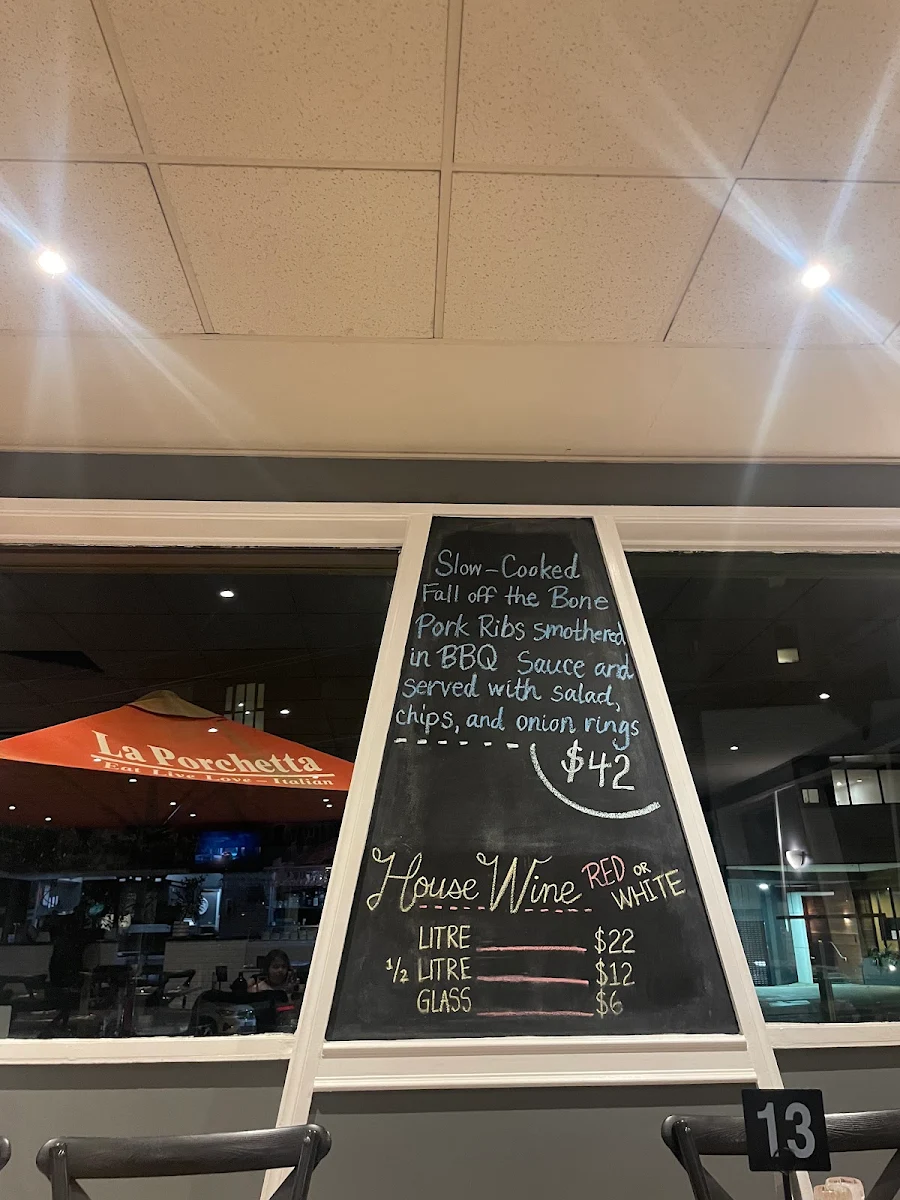 Slow-Cooked
Fall off the Bone
Pork Ribs smothered
in BBQ Sauce and
served with salad,
chips, and onion rings
$42
La Porchetta
Eat Live Love - Italian
House Wine RED OR WHITE
LITRE $22
1/2 LITRE $12
GLASS $6
13